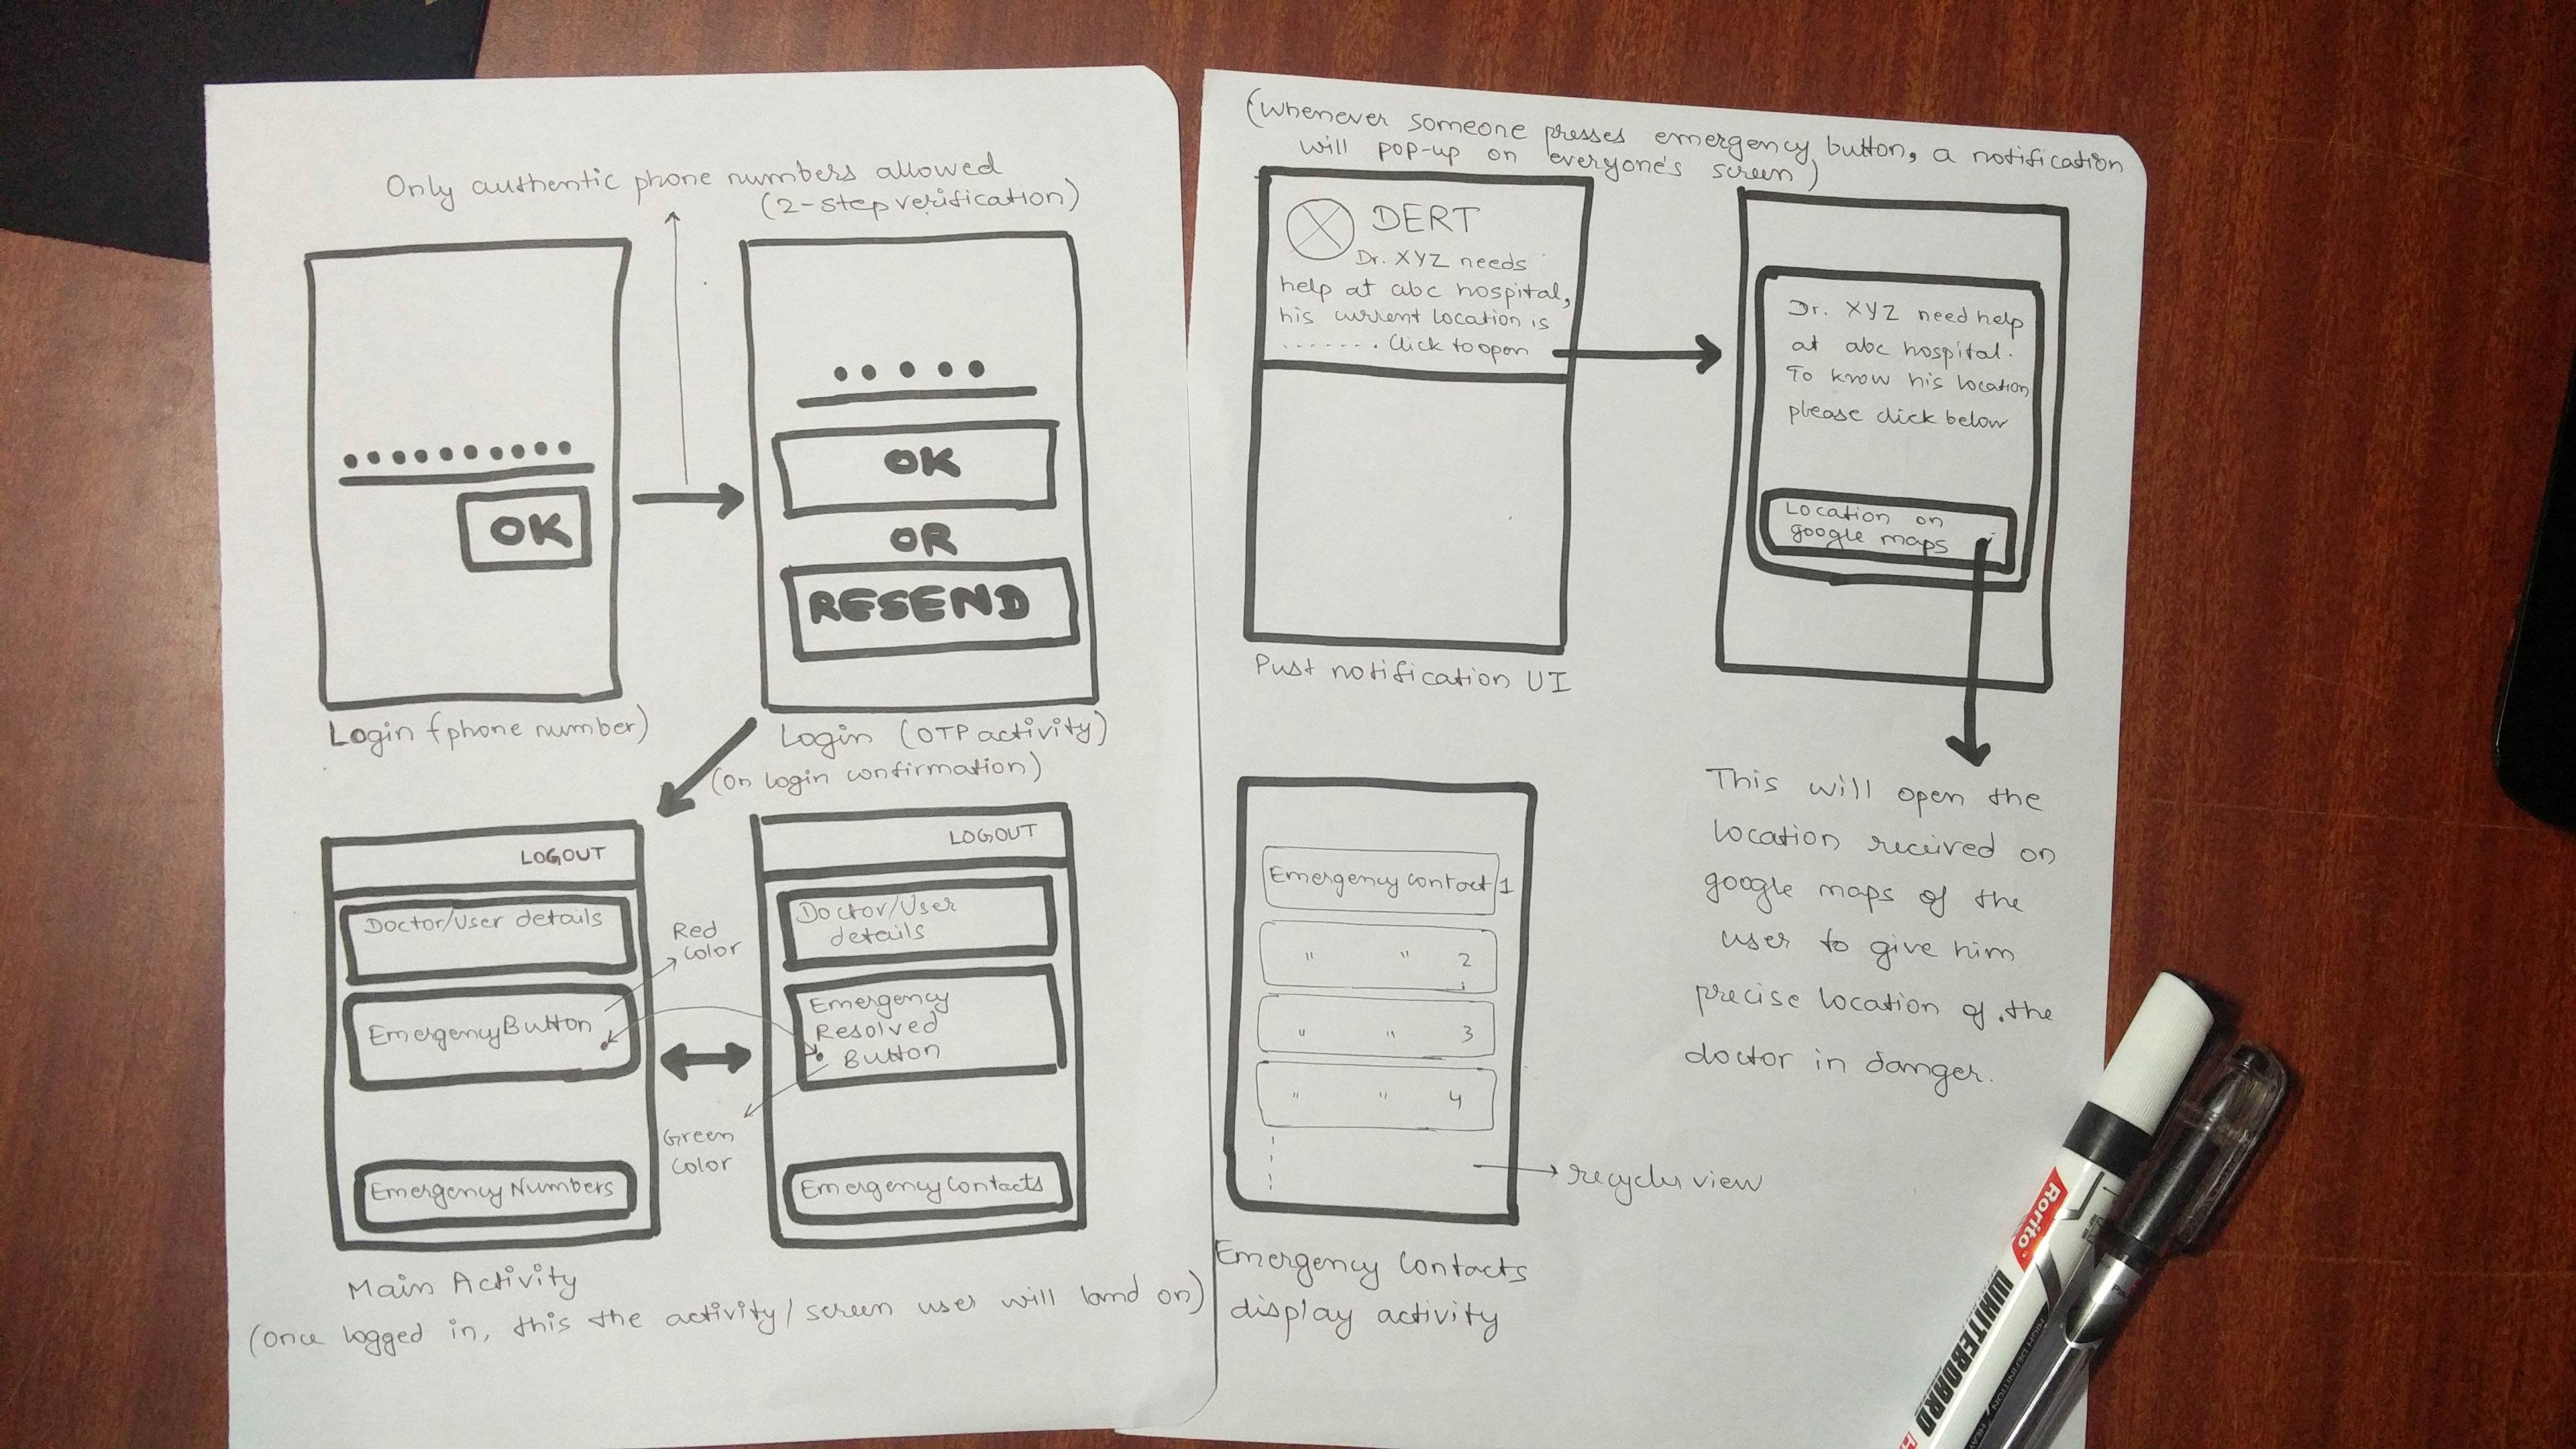 Only authentic phone numbers allowed
(2-step verification)
OK
OK
OR
RESEND
Login (phone number)
Login (OTP activity)
(On login confirmation)
LOGOUT
Doctor/User details
Emergency Button
Emergency Numbers
Red
color
Green
color
LOGOUT
Doctor/User
details
Emergency
Resolved
Button
Emergency Contacts
Main Activity
(once logged in, this the activity/screen user will land on)
(Whenever someone presses emergency button, a notification
will pop-up on everyone's screen)
DERT
Dr. XYZ needs
help at abc hospital,
his current location is
....... Click to open
Pust notification UI
Dr. XYZ need help
at abc hospital.
To know his location
please click below
Location on
google maps
This will open the
location received on
google maps of the
user to give him
precise location of the
doctor in danger.
Emergency contact 1
" " 2
" " 3
" " 4
recycler view
Emergency Contacts
display activity
Rorito
WHITEBOARD